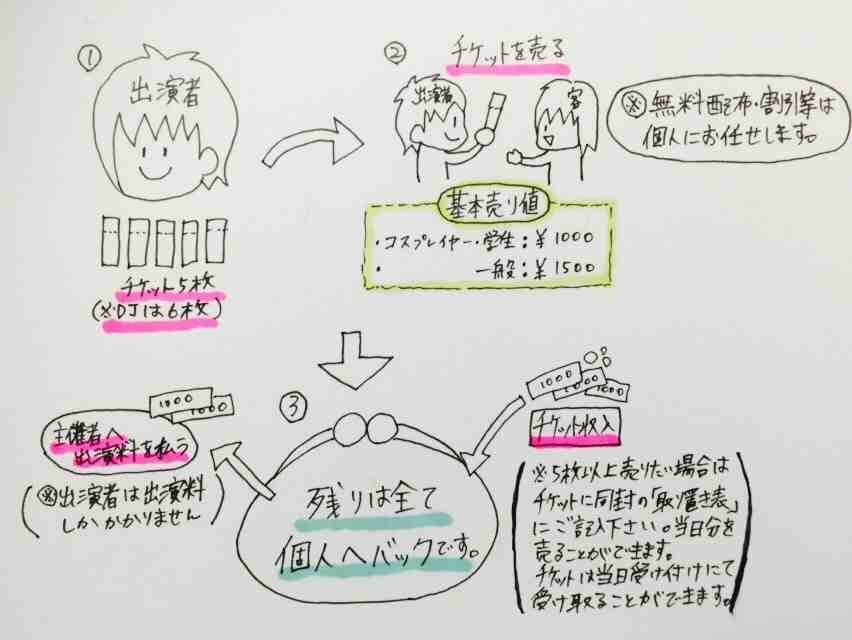 ①
出演者
チケット5枚
(※DJは6枚)
②
チケットを売る
出演者
客
※無料配布・割引等は
個人にお任せします。
基本売り値
・コスプレイヤー・学生：￥1000
・一般：￥1500
③
1000
1000
主催者へ
出演料を払う
(※出演者は出演料
しかかかりません)
残りは全て
個人へバックです。
1000
1000
1000
チケット収入
(※5枚以上売りたい場合は
チケットに同封の「取り置き表」
にご記入下さい。当日分を
売ることができます。
チケットは当日受け付けにて
受け取ることができます。)